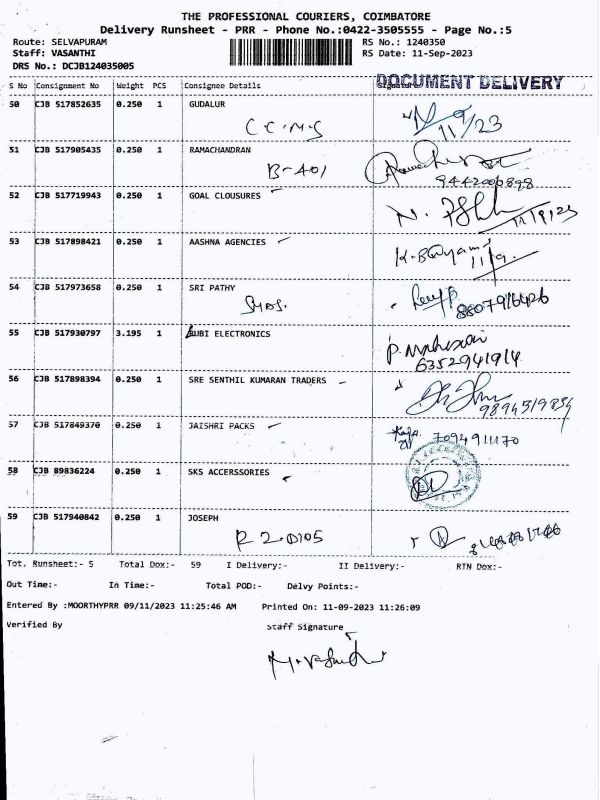 THE PROFESSIONAL COURIERS, COIMBATORE
Delivery Runsheet - PRR - Phone No.:0422-3505555 - Page No.:5
Route: SELVAPURAM RS No.: 1240350
Staff: VASANTHI RS Date: 11-Sep-2023
DRS No.: DCJB124035005
DOCUMENT DELIVERY
S No Consignment No Weight PCS Consignee Details
50 CJB 517852635 0.250 1 GUDALUR
11/9/23
51 CJB 517905435 0.250 1 RAMACHANDRAN
B-401
9442006898
52 CJB 517719943 0.250 1 GOAL CLOUSURES
11/9/23
53 CJB 517898421 0.250 1 AASHNA AGENCIES
11/9.
54 CJB 517973658 0.250 1 SRI PATHY
8807916426
55 CJB 517930797 3.195 1 SUBI ELECTRONICS
6352941914
56 CJB 517898394 0.250 1 SRE SENTHIL KUMARAN TRADERS
57 CJB 517849370 0.250 1 JAISHRI PACKS
7094911170
58 CJB 89836224 0.250 1 SKS ACCERSSORIES
59 CJB 517940842 0.250 1 JOSEPH
Tot. Runsheet:- 5 Total Dox:- 59 I Delivery:- II Delivery:- RTN Dox:-
Out Time:- In Time:- Total POD:- Delvy Points:-
Entered By :MOORTHYPRR 09/11/2023 11:25:46 AM Printed On: 11-09-2023 11:26:09
Verified By Staff Signature